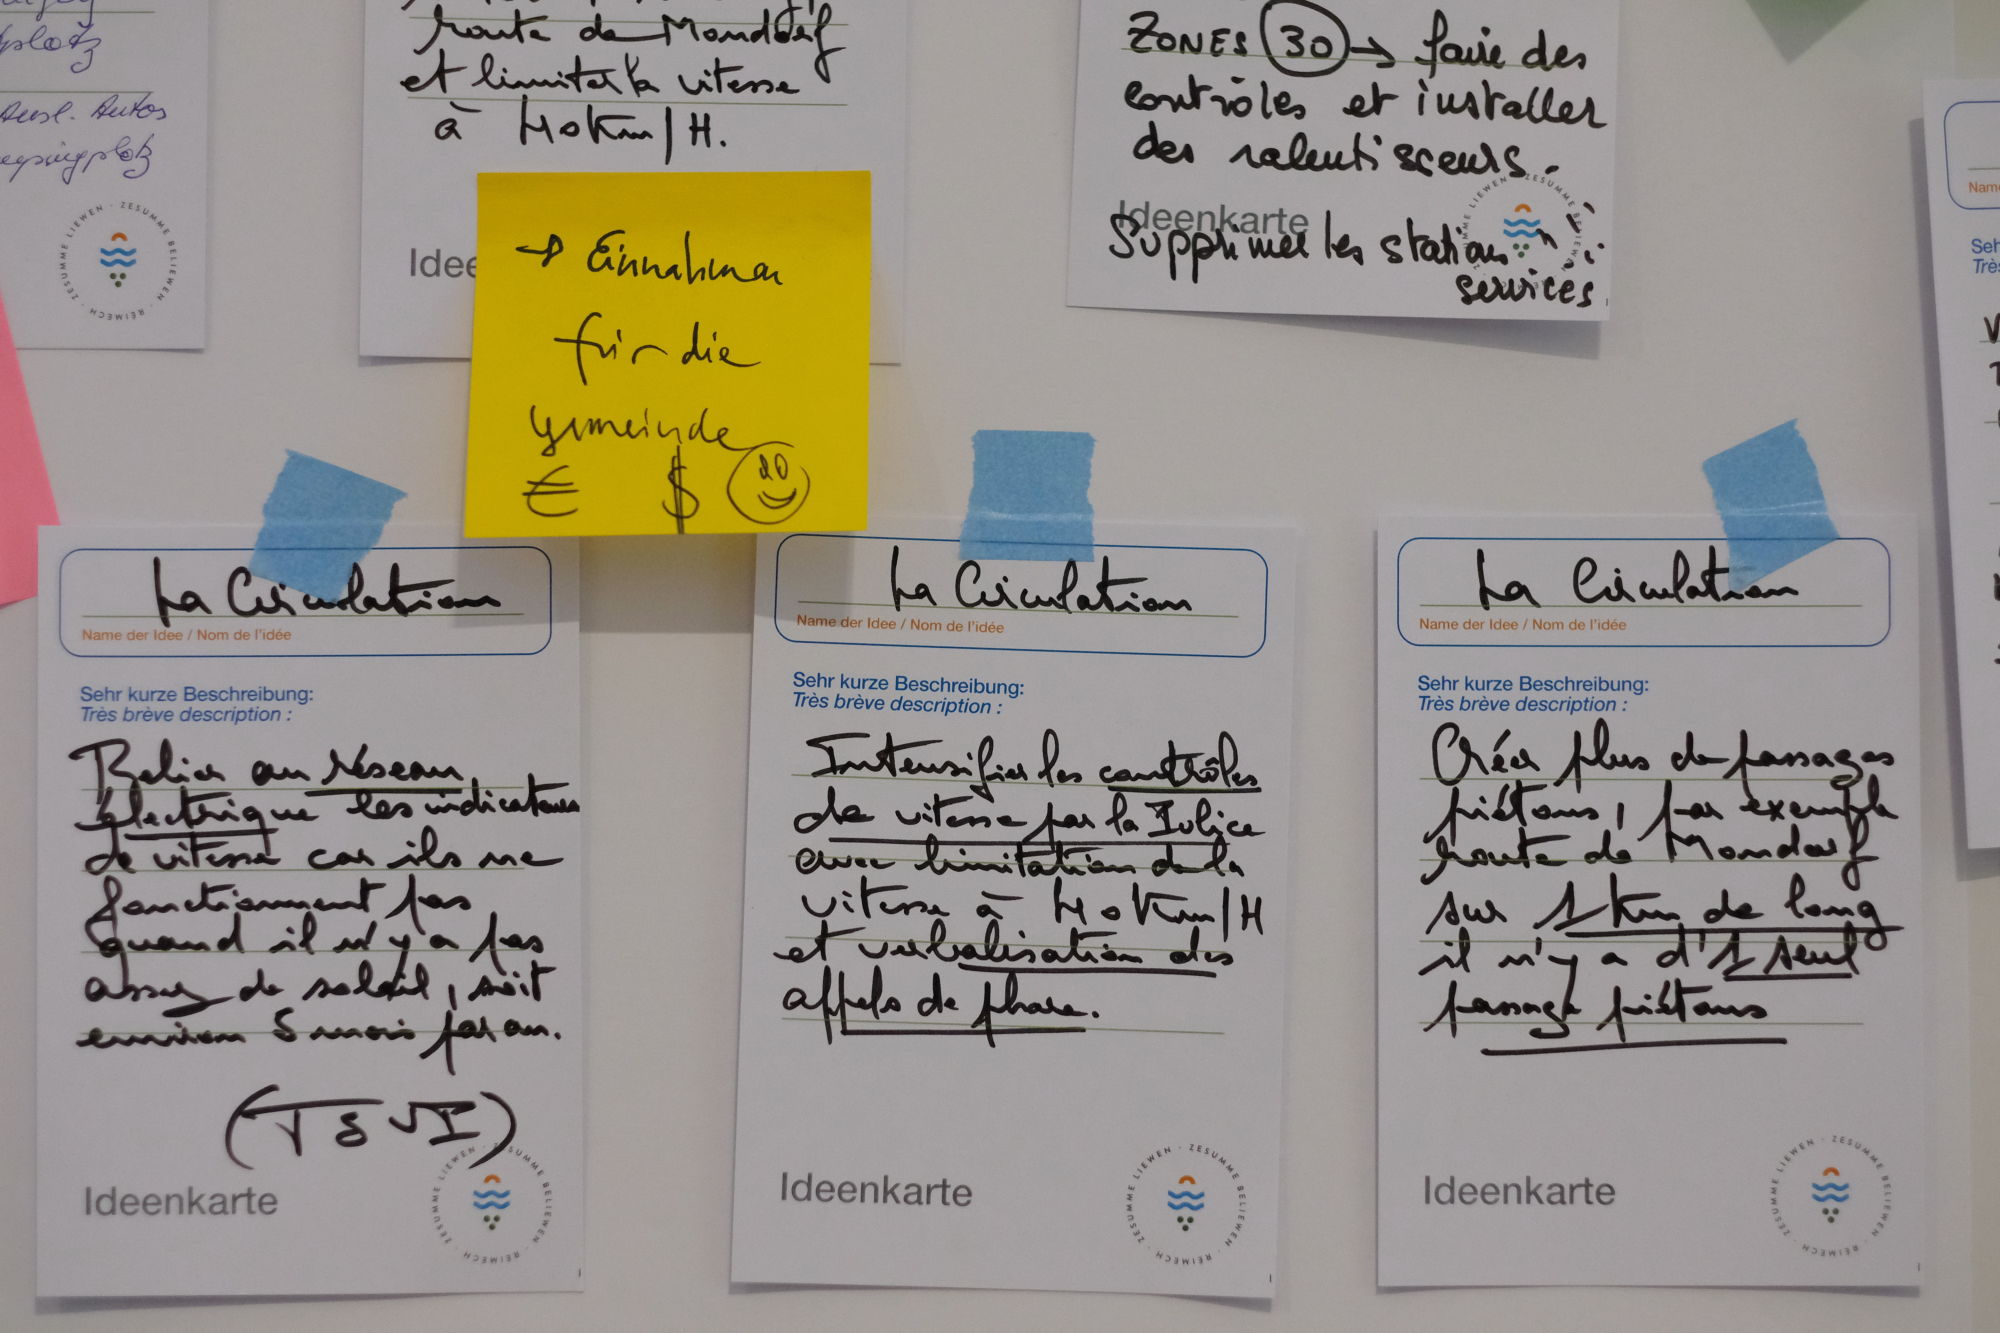 platz
Ausl. Autos
ZESUMME LIEWEN · ZESUMME BELIEWEN · REIMECH ·
route de Mondorf
et limiter la vitesse
à 40 Km/H.
Idee
→ Einnahmen
für die
Gemeinde
€ $
ZONES 30 → faire des
contrôles et installer
des ralentisseurs.
Ideenkarte
Supprimer les stations
services
ZESUMME BELIEWEN
La Circulation
Name der Idee / Nom de l'idée
Sehr kurze Beschreibung:
Très brève description :
Relier au réseau
électrique les indicateurs
de vitesse car ils ne
fonctionnent pas
quand il n'y a pas
assez de soleil, soit
environ 5 mois par an.
Ideenkarte
ZESUMME LIEWEN · ZESUMME BELIEWEN · REIMECH ·
La Circulation
Name der Idee / Nom de l'idée
Sehr kurze Beschreibung:
Très brève description :
Intensifier les contrôles
de vitesse par la Police
avec limitation de la
vitesse à 40 Km/H
et verbalisation des
appels de phare.
Ideenkarte
ZESUMME LIEWEN · ZESUMME BELIEWEN · REIMECH ·
La Circulation
Name der Idee / Nom de l'idée
Sehr kurze Beschreibung:
Très brève description :
Créer plus de passages
piétons, par exemple
route de Mondorf
sur 1 km de long
il n'y a d'1 seul
passage piétons
Ideenkarte
ZESUMME LIEWEN · ZESUMME BELIEWEN · REIMECH ·
Name
Seh
Très